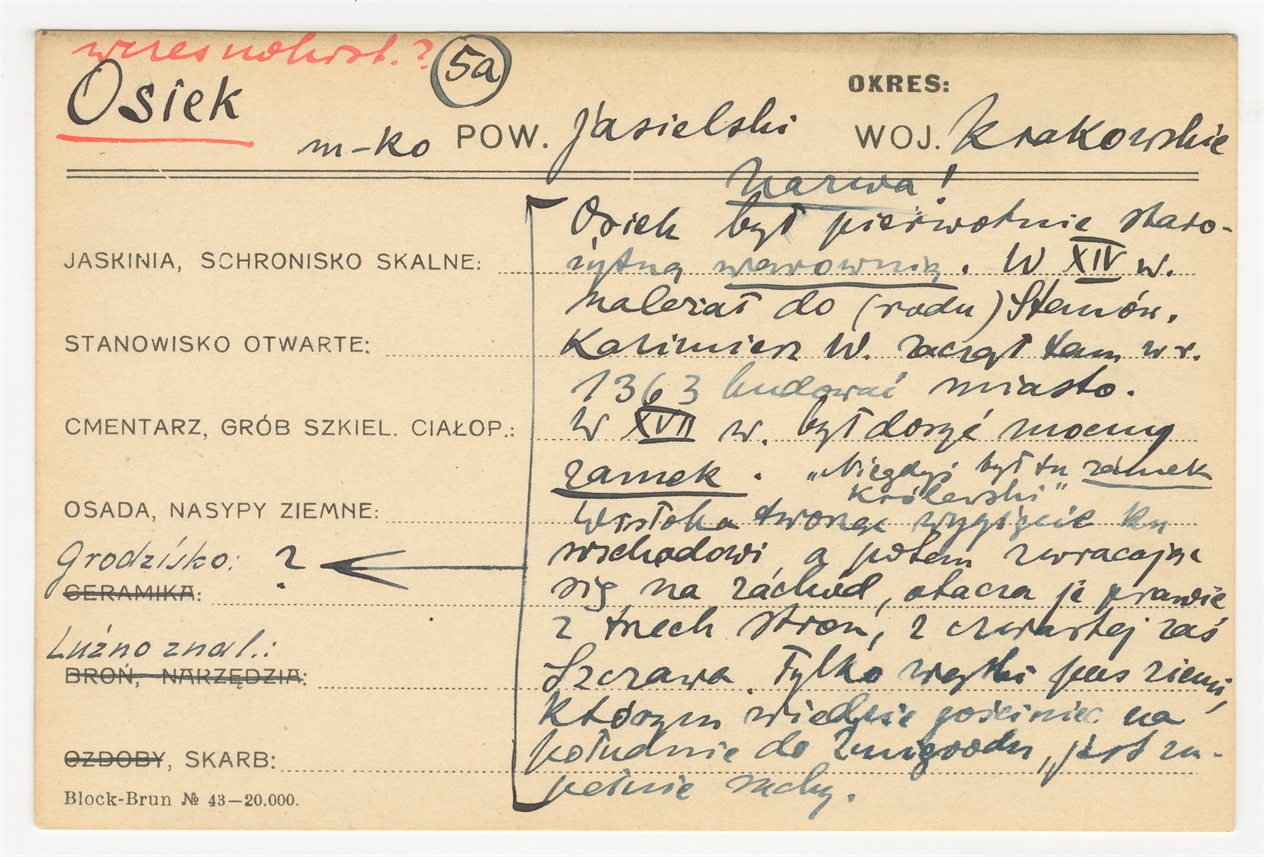 wczesnohist.?
5a
Osiek
OKRES:
m-ko POW. jasielski WOJ. Krakowskie
Nazwa!
Osiek był pierwotnie staro-
JASKINIA, SCHRONISKO SKALNE:
żytną warownią. W XIV w.
należał do (rodu) Stenów.
STANOWISKO OTWARTE:
Kazimierz W. zaczął tam w r.
1363 budować miasto.
CMENTARZ, GRÓB SZKIEL. CIAŁOP.:
W XVII w. był dosyć mocny
zamek. „Niegdyś był tu zamek
królewski"
OSADA, NASYPY ZIEMNE:
Wisłoka tworząc wygięcie ku
Grodzisko: ?
wschodowi, a potem zwracając
CERAMIKA:
się na zachód, otacza je prawie
z trzech stron, z czwartej zaś
Luźno znal.:
BROŃ, NARZĘDZIA:
Szczawa. Tylko wąski pas ziemi,
którym wiedzie gościniec na
południe do Żmigrodu, jest zu-
OZDOBY, SKARB:
pełnie suchy.
Block-Brun № 43—20.000.